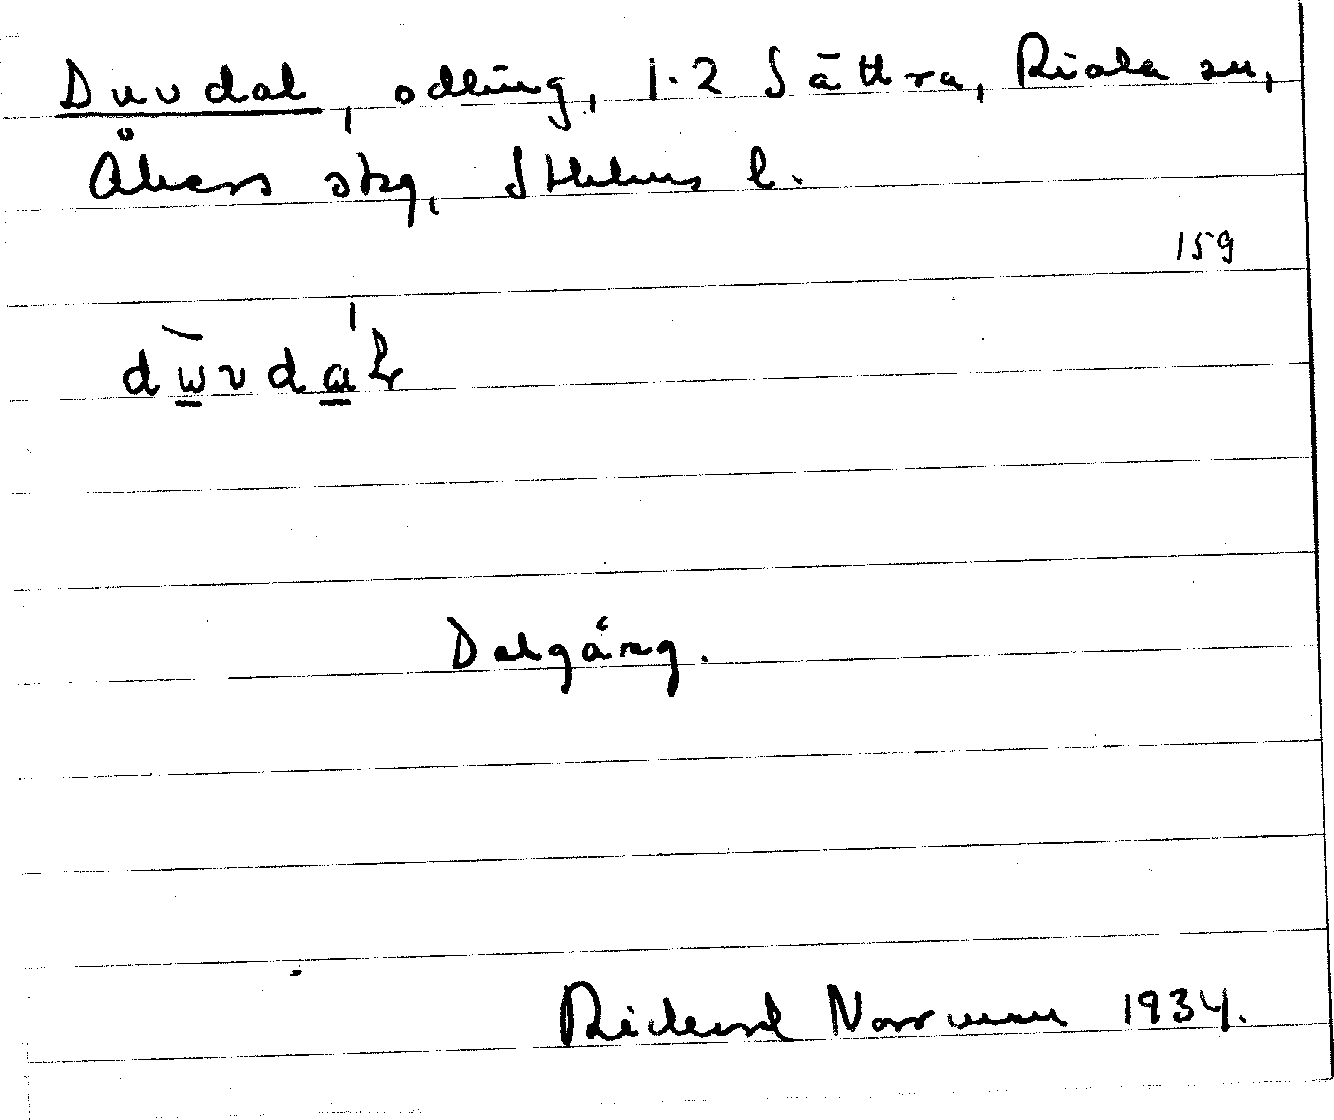 Duvdal, odling, 1-2 Sättra, Riala sn,
Åkers skg, Sthlms l.
159
dɯvdaɫ
Dalgång.
Rickard Norrman 1934.